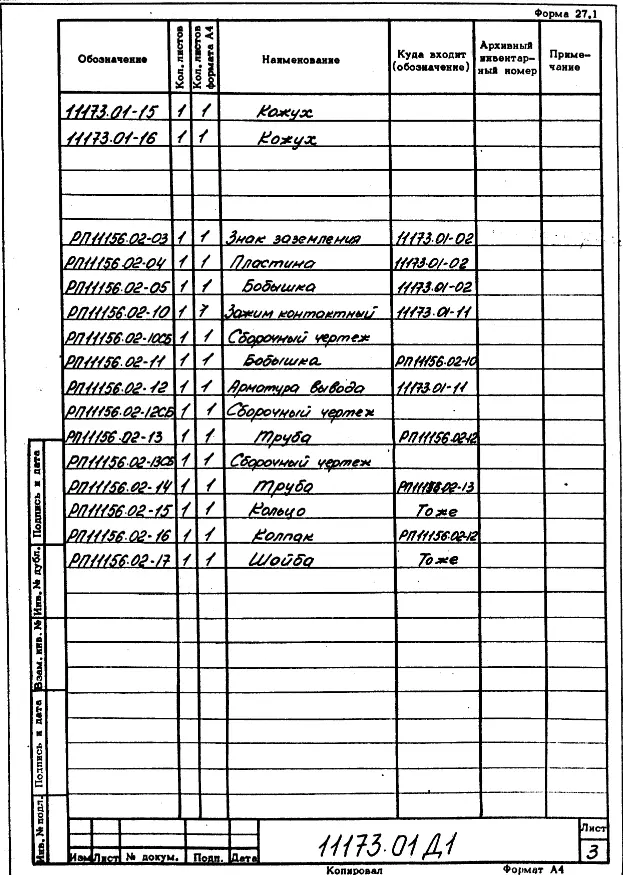 Форма 27.1
Обозначение Кол. листов Кол. листов формата А4 Наименование Куда входит (обозначение) Архивный инвентар-ный номер Приме-чание
11173.01-15 1 1 Кожух
11173.01-16 1 1 Кожух
РП11156.02-03 1 1 Знак заземления 11173.01-02
РП11156.02-04 1 1 Пластина 11173.01-02
РП11156.02-05 1 1 Бобышка 11173.01-02
РП11156.02-10 1 1 Зажим контактный 11173.01-11
РП11156.02-10СБ 1 1 Сборочный чертеж
РП11156.02-11 1 1 Бобышка РП11156.02-10
РП11156.02-12 1 1 Арматура вывода 11173.01-11
РП11156.02-12СБ 1 1 Сборочный чертеж
РП11156.02-13 1 1 Труба РП11156.02-12
РП11156.02-13СБ 1 1 Сборочный чертеж
РП11156.02-14 1 1 Труба РП11156.02-13
РП11156.02-15 1 1 Кольцо То же
РП11156.02-16 1 1 Колпак РП11156.02-12
РП11156.02-17 1 1 Шайба То же
Подпись и дата
Инв. № дубл.
Взам. инв. №
Подпись и дата
Инв. № подл.
Изм Лист № докум. Подп. Дата
11173.01 Д1
Лист
3
Копировал Формат А4